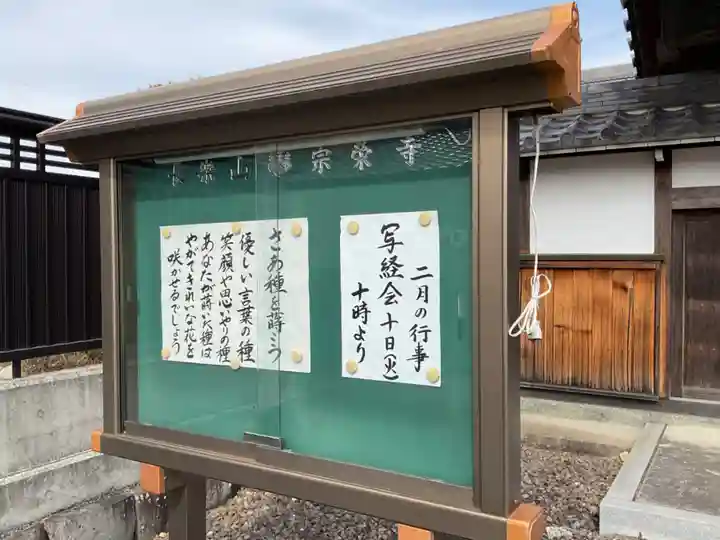 山 宗栄寺
二月の行事
写経会 十日(火)
十時より
さあ種を蒔こう
優しい言葉の種
笑顔や思いやりの種
あなたが蒔いた種は
やがてきれいな花を
咲かせるでしょう